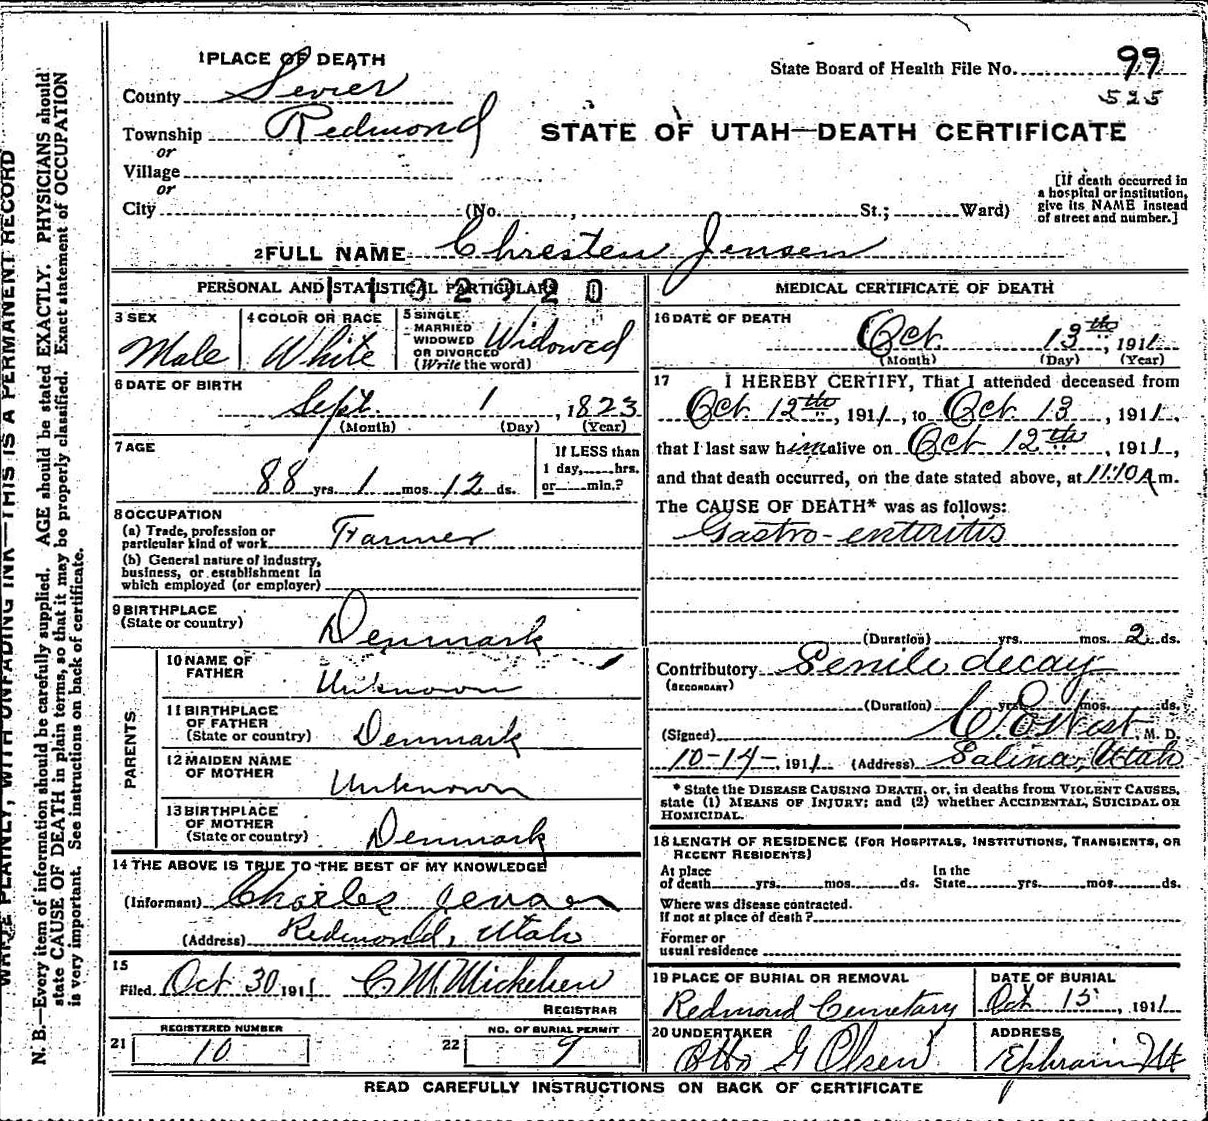 WRITE PLAINLY, WITH UNFADING INK—THIS IS A PERMANENT RECORD
N. B.—Every item of information should be carefully supplied. AGE should be stated EXACTLY. PHYSICIANS should
state CAUSE OF DEATH in plain terms, so that it may be properly classified. Exact statement of OCCUPATION
is very important. See instructions on back of certificate.
1 PLACE OF DEATH
County Sevier
Township Redmond
or
Village
or
City (No. , St.; Ward)
State Board of Health File No. 99
525
STATE OF UTAH—DEATH CERTIFICATE
[If death occurred in
a hospital or institution,
give its NAME instead
of street and number.]
2 FULL NAME Chresten Jensen
PERSONAL AND STATISTICAL PARTICULARS
3 SEX
Male
4 COLOR OR RACE
White
5 SINGLE
MARRIED
WIDOWED
OR DIVORCED
(Write the word)
Widowed
6 DATE OF BIRTH
Sept. 1, 1823
(Month) (Day) (Year)
7 AGE
88 yrs. 1 mos. 12 ds.
If LESS than
1 day, hrs.
or min.?
8 OCCUPATION
(a) Trade, profession or
particular kind of work Farmer
(b) General nature of industry,
business, or establishment in
which employed (or employer)
9 BIRTHPLACE
(State or country)
Denmark
PARENTS
10 NAME OF
FATHER
Unknown
11 BIRTHPLACE
OF FATHER
(State or country)
Denmark
12 MAIDEN NAME
OF MOTHER
Unknown
13 BIRTHPLACE
OF MOTHER
(State or country)
Denmark
14 THE ABOVE IS TRUE TO THE BEST OF MY KNOWLEDGE
(Informant) Charles Jensen
(Address) Redmond, Utah
15
Filed Oct 30 1911 C M Mickelsen
REGISTRAR
REGISTERED NUMBER
21 10
NO. OF BURIAL PERMIT
22 9
MEDICAL CERTIFICATE OF DEATH
16 DATE OF DEATH
Oct. 13th, 1911
(Month) (Day) (Year)
17 I HEREBY CERTIFY, That I attended deceased from
Oct. 12th, 1911, to Oct. 13, 1911,
that I last saw him alive on Oct 12th, 1911,
and that death occurred, on the date stated above, at 11:10 A m.
The CAUSE OF DEATH* was as follows:
Gastro-enteritis
(Duration) yrs. mos. 2 ds.
Contributory Senile decay
(SECONDARY)
(Duration) yrs. mos. ds.
(Signed) C. E. West M. D.
10-14-, 1911 (Address) Salina, Utah
* State the DISEASE CAUSING DEATH, or, in deaths from VIOLENT CAUSES,
state (1) MEANS OF INJURY; and (2) whether ACCIDENTAL, SUICIDAL OR
HOMICIDAL.
18 LENGTH OF RESIDENCE (FOR HOSPITALS, INSTITUTIONS, TRANSIENTS, OR
RECENT RESIDENTS)
At place
of death yrs. mos. ds.
In the
State yrs. mos. ds.
Where was disease contracted.
If not at place of death?
Former or
usual residence
19 PLACE OF BURIAL OR REMOVAL
Redmond Cemetary
DATE OF BURIAL
Oct 15, 1911
20 UNDERTAKER
Otto G Olsen
ADDRESS
Ephraim Ut
READ CAREFULLY INSTRUCTIONS ON BACK OF CERTIFICATE